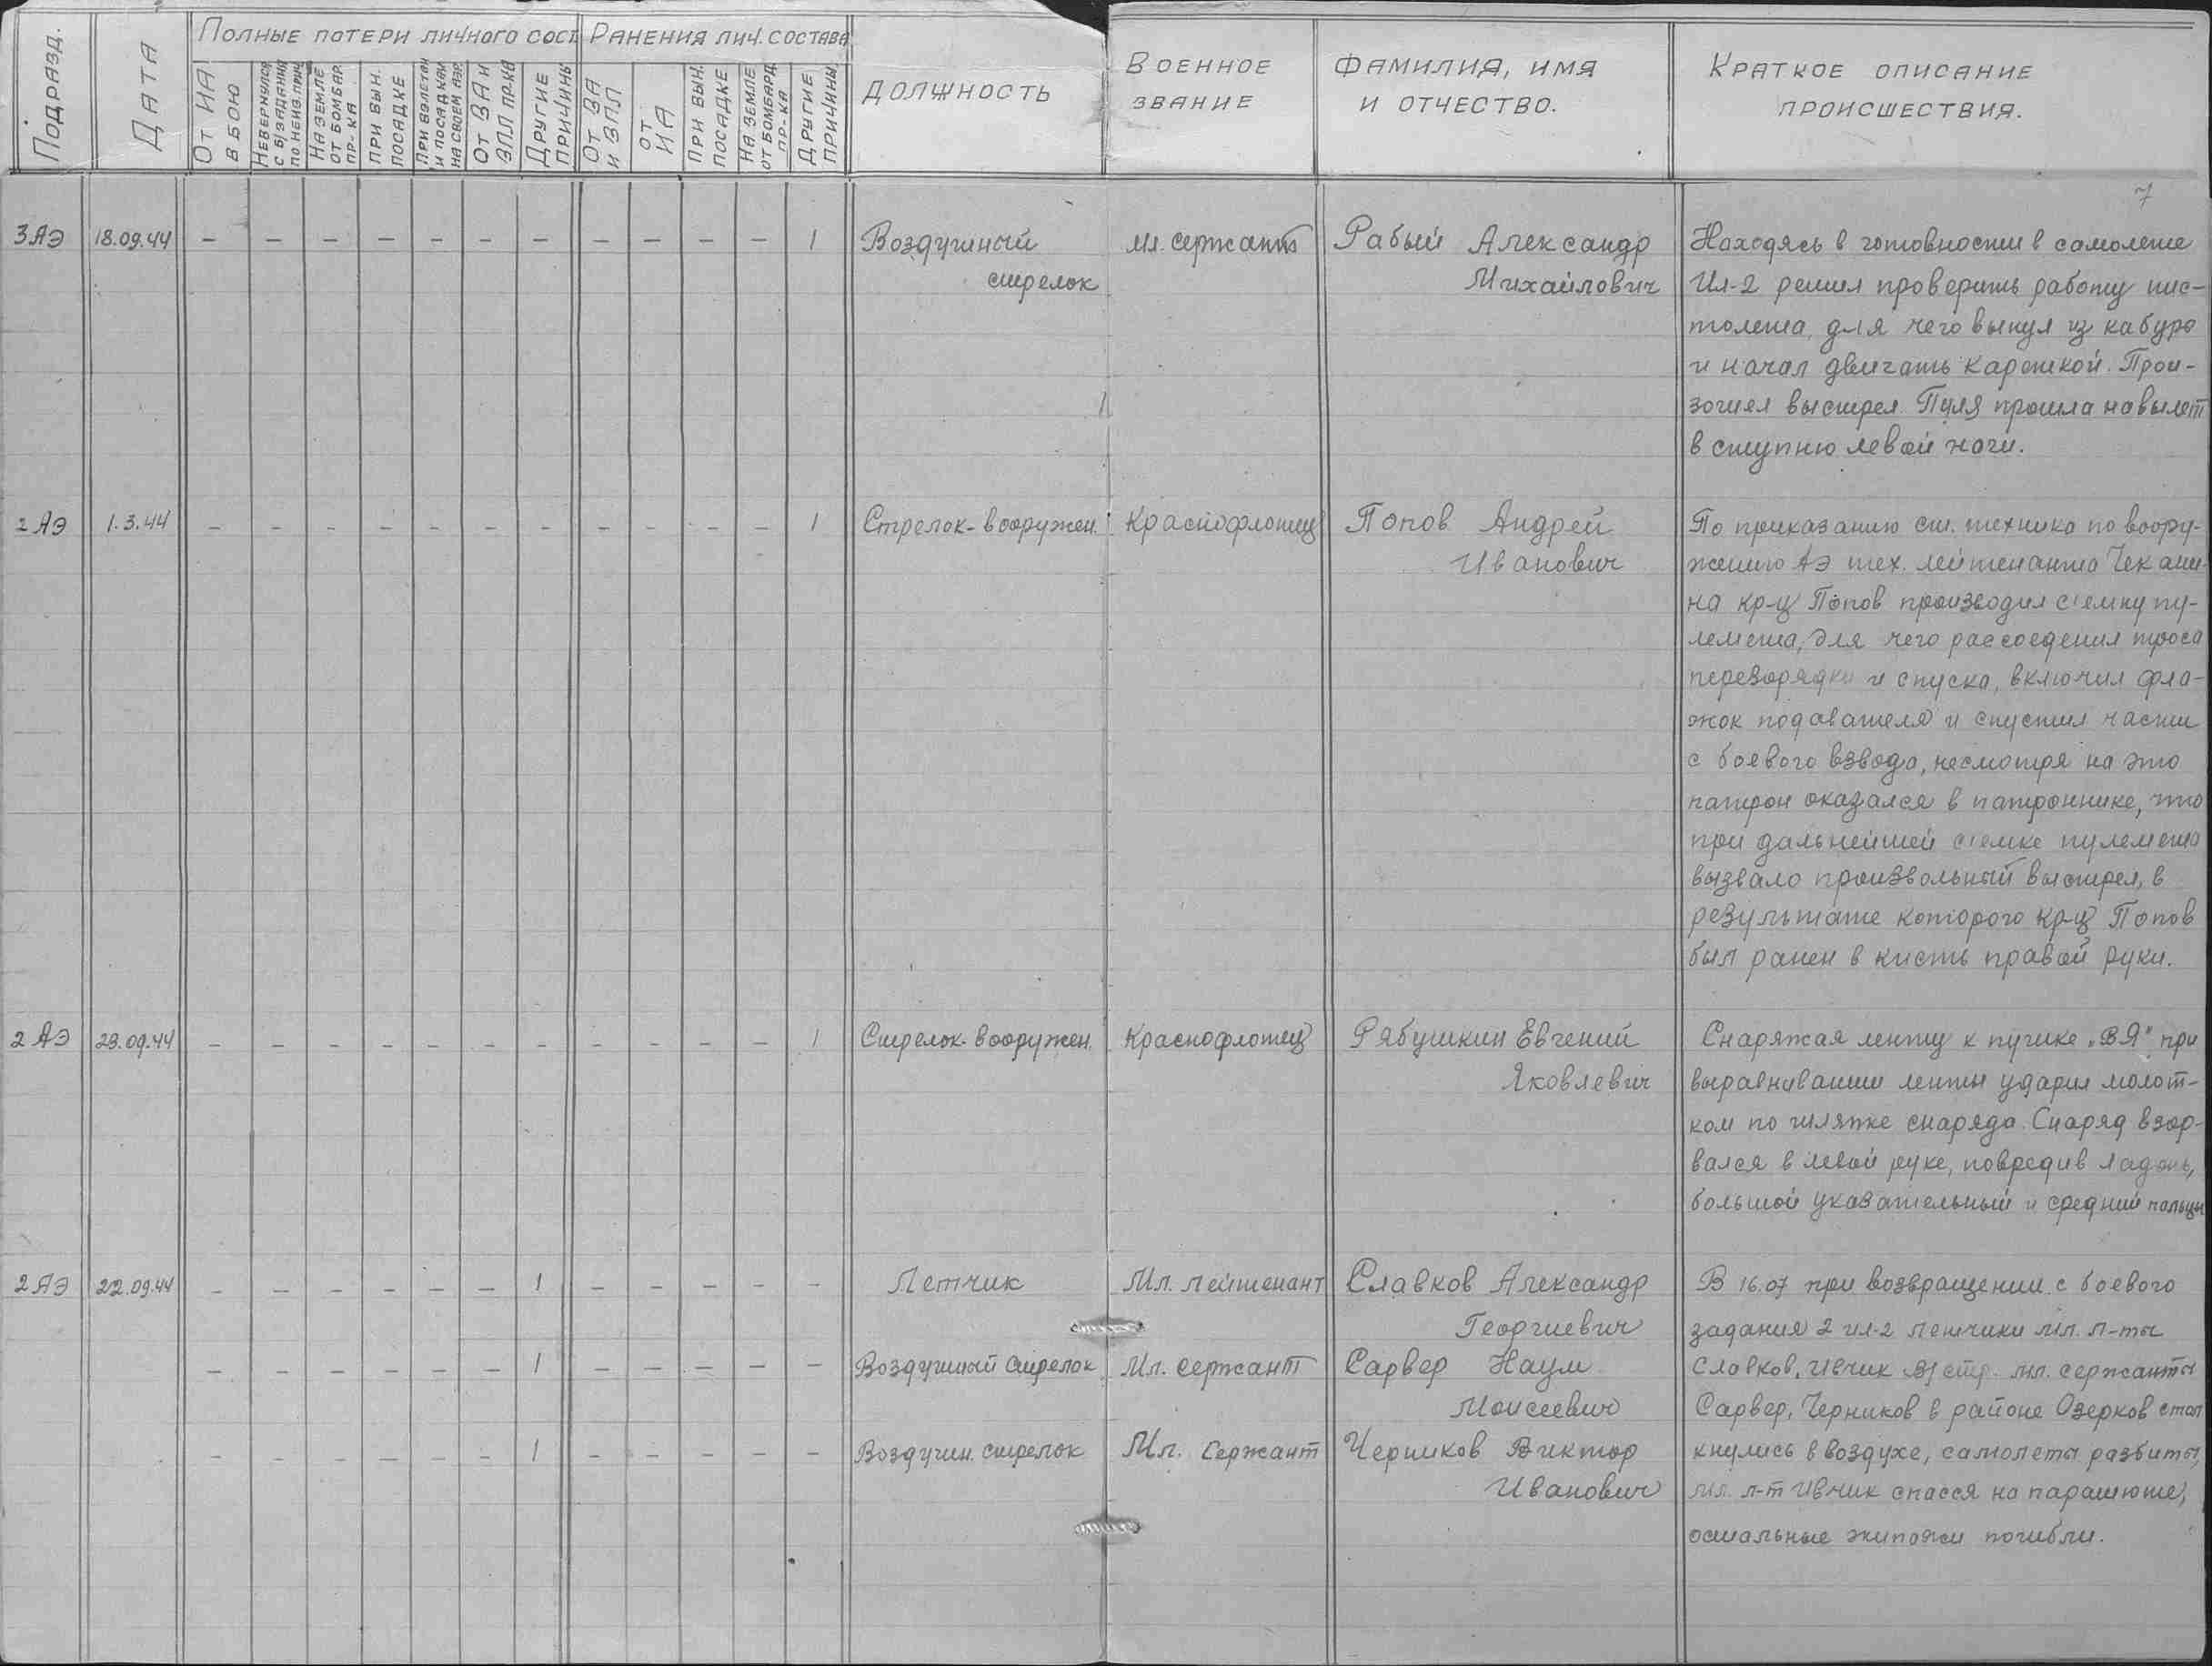 Подразд.
Дата
Полные потери личного сост.
От ИА в бою
Невернулся с б/задания по неизв. прич.
На земле от бомбар. пр-ка
При вын. посадке
При взлетах и посадках на своем аэр.
От ЗА и ЗПЛ пр-ка
Другие причины
Ранения лич. состава
От ЗА и ЗПЛ
От ИА
При вын. посадке
На земле от бомбард. пр-ка
Другие причины
Должность
Военное
звание
Фамилия, имя
и отчество.
Краткое описание
происшествия.
7
3 АЭ 18.09.44 – – – – – – – – – – – 1 Воздушный мл. сержант Рабый Александр Находясь в готовности в самолете
стрелок Михайлович Ил-2 решил проверить работу пис-
толета, для чего вынул из кабуро
и начал двигать кареткой. Прои-
зошел выстрел. Пуля прошла навылет
в ступню левой ноги.
2 АЭ 1.3.44 – – – – – – – – – – – 1 Стрелок-вооружен. Краснофлотец Попов Андрей По приказанию ст. техника по воору-
Иванович жению АЭ тех. лейтенанта Чекани-
на кр-ц Попов производил с'емку пу-
лемета, для чего рассоединил троса
перезарядки и спуска, включил фла-
жок подавателя и спустил части
с боевого взвода, несмотря на это
патрон оказался в патроннике, что
при дальнейшей с'емке пулемета
вызвало произвольный выстрел, в
результате которого кр-ц Попов
был ранен в кисть правой руки.
2 АЭ 23.09.44 – – – – – – – – – – – 1 Стрелок-вооружен. Краснофлотец Рябушкин Евгений Снаряжая ленту к пушке „ВЯ" при
Яковлевич выравнивании ленты ударил молот-
ком по шляпке снаряда. Снаряд взор-
вался в левой руке, повредив ладонь,
большой указательный и средний пальцы
2 АЭ 22.09.44 – – – – – – 1 – – – – – Летчик Мл. лейтенант Славков Александр В 16.07 при возвращении с боевого
Георгиевич задания 2 ил-2 летчики мл. л-ты
– – – – – – 1 – – – – – Воздушный стрелок Мл. сержант Сарвер Наум Славков, Ивчик в/стр. мл. сержанты
Моисеевич Сарвер, Черников в районе Озерков стол
– – – – – – 1 – – – – – Воздушн. стрелок Мл. Сержант Черников Виктор кнулись в воздухе, самолеты разбиты,
Иванович мл. л-т Ивчик спасся на парашюте,
остальные экипажи погибли.